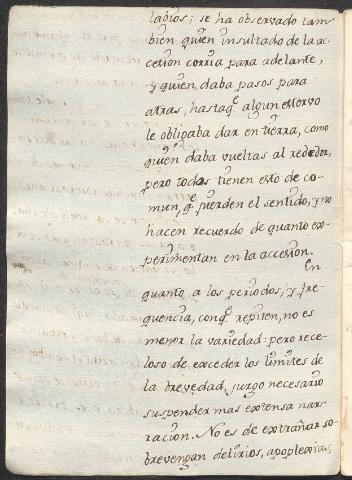 labios; se ha observado tam-
bien quien insultado de la ac-
cesion corria para adelante,
y quien daba pasos para
atras, hasta q.e algun estorvo
le obligaba dar en tierra, como
quien daba vueltas al rededor,
pero todos tienen esto de co-
mun, q.e pierden el sentido, y no
hacen recuerdo de quanto ex-
perimentan en la accesion.
En
quanto a los periodos, y fre-
quencia, con q.e repiten, no es
menor la variedad: pero rece-
loso de exceder los limites de
la brevedad, jusgo necesario
suspender mas extensa nar-
racion. No es de extrañar so-
brevengan delirios, apoplexias,